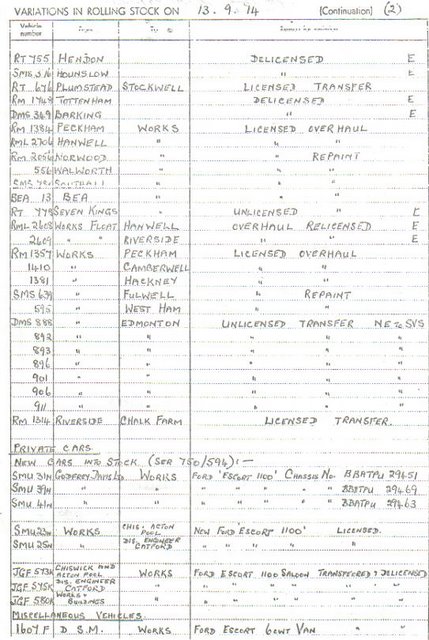 VARIATIONS IN ROLLING STOCK ON 13.9.74 (Continuation) (2)
Vehicle number
RT 755 HENDON DELICENSED E
SMS 316 HOUNSLOW " E
RT 676 PLUMSTEAD STOCKWELL LICENSED TRANSFER
RM 1748 TOTTENHAM DELICENSED E
DMS 369 BARKING " E
RM 1384 PECKHAM WORKS LICENSED OVERHAUL
RML 2706 HANWELL " " "
RM 2056 NORWOOD " " REPAINT
556 WALWORTH " " "
SMS SOUTHALL " " "
BEA 13 BEA " " "
RT 778 SEVEN KINGS UNLICENSED " E
RML 2608 WORKS FLOAT HANWELL OVERHAUL RELICENSED E
2609 " " RIVERSIDE " " E
RM 1357 WORKS PECKHAM LICENSED OVERHAUL
1410 " CAMBERWELL " "
1381 " HACKNEY " "
SMS 639 " FULWELL " REPAINT
595 " WEST HAM " "
DMS 888 " EDMONTON UNLICENSED TRANSFER NE TO SVS
892 " " " " "
893 " " " " "
896 " " " " "
901 " " " " "
906 " " " " "
911 " " " " "
RM 1314 RIVERSIDE CHALK FARM LICENSED TRANSFER.
PRIVATE CARS
NEW CARS INTO STOCK (SER 750/594):-
SMU 31N GODFREY DAVIS LTD WORKS FORD 'ESCORT 1100' CHASSIS NO. BBATPU 29451
SMU 39N " " " " " " BBATPU 29469
SMU 41N " " " " " " BBATPU 29463
SMU 23N WORKS CHIS. ACTON POOL NEW FORD 'ESCORT 1100' LICENSED.
SMU 25N " DIS. ENGINEER CATFORD " " " " "
JGF 573K CHISWICK AND ACTON POOL WORKS FORD ESCORT 1100 SALOON TRANSFERRED & DELICENSED
JGF 575K DIS. ENGINEER CATFORD " " " " " " "
JGF 580K WORKS & BUILDINGS " " " " " " "
MISCELLANEOUS VEHICLES
1607 F D.S.M. WORKS FORD ESCORT 6CWT VAN " "